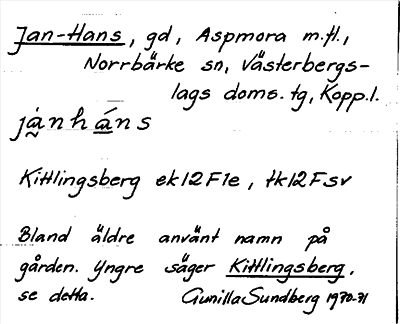 Jan-Hans, gd, Aspmora m.fl.,
Norrbärke sn, Västerbergs-
lags doms. tg, Kopp. l.
jànháns
Kittlingsberg ek12F1e, tk12Fsv
Bland äldre använt namn på
gården. Yngre säger Kittlingsberg,
se detta. Gunilla Sundberg 1970-71